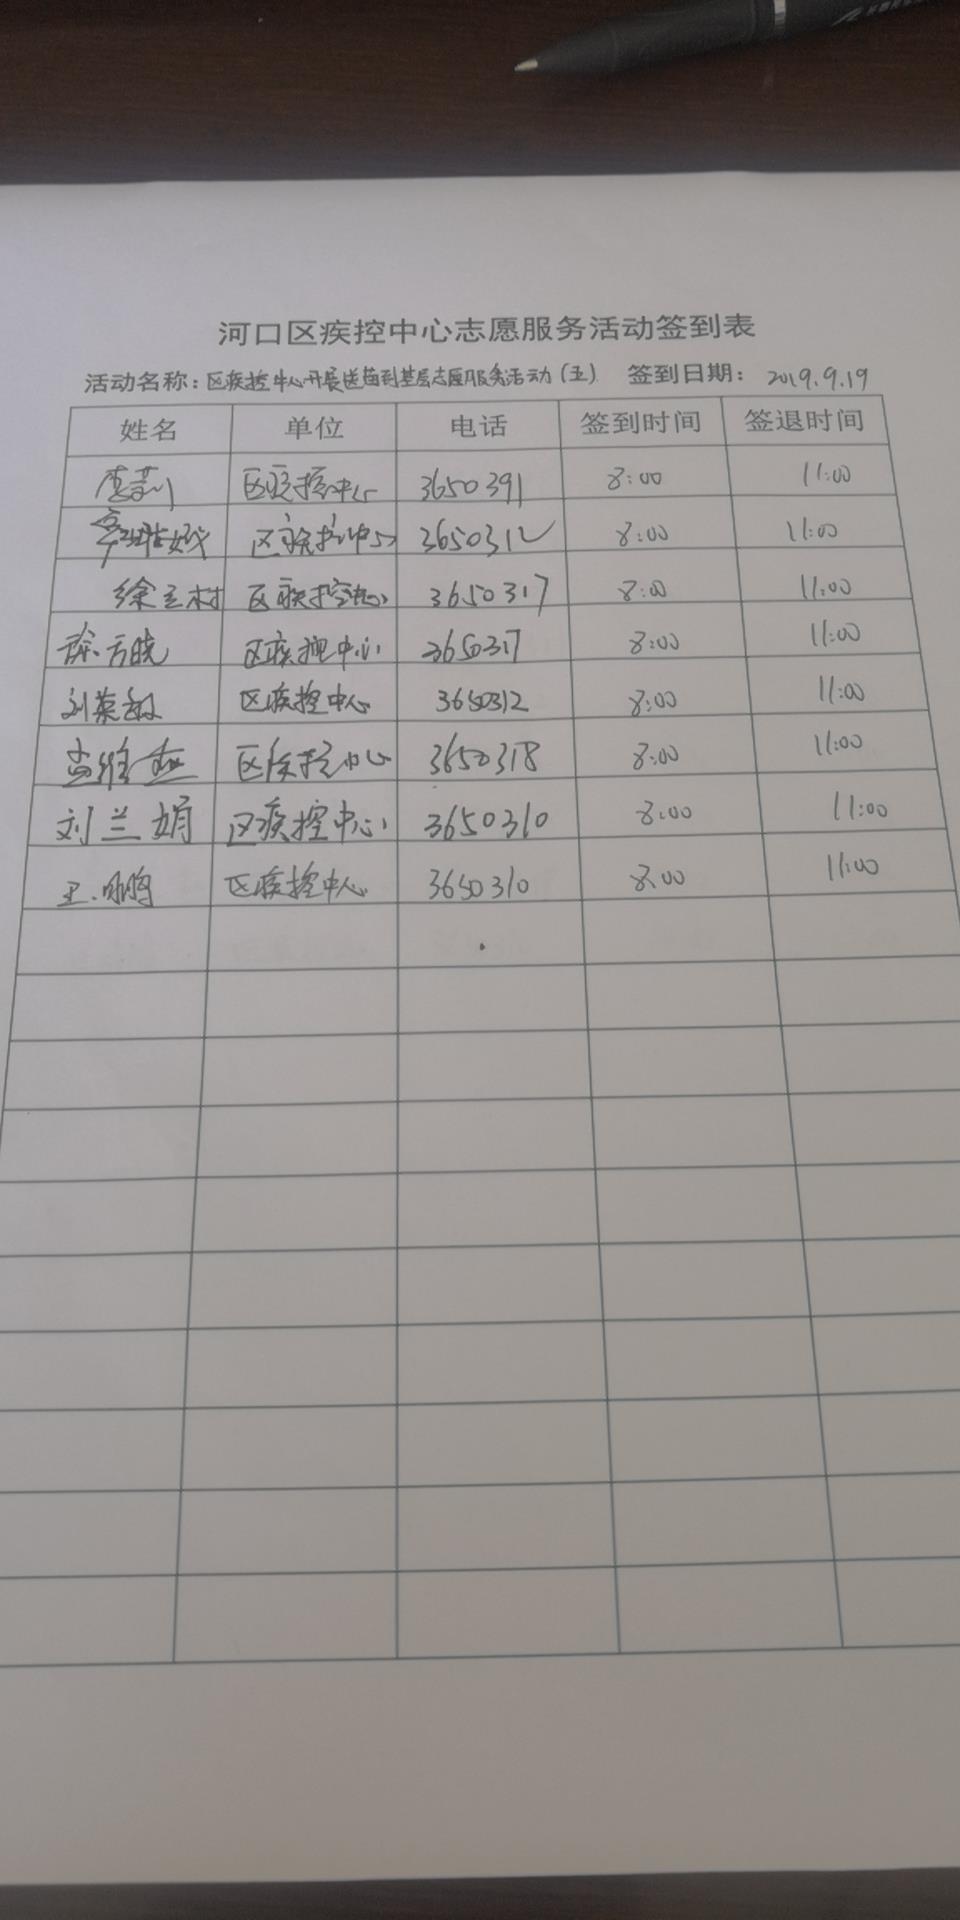 河口区疾控中心志愿服务活动签到表
活动名称：区疾控中心开展送苗到基层志愿服务活动（五） 签到日期：2019.9.19
姓名 单位 电话 签到时间 签退时间
区疾控中心 3650391 8:00 11:00
区疾控中心 3650312 8:00 11:00
徐立村 区疾控中心 3650317 8:00 11:00
区疾控中心 3650317 8:00 11:00
刘英敏 区疾控中心 3650312 8:00 11:00
区疾控中心 3650318 8:00 11:00
刘兰娟 区疾控中心 3650310 8:00 11:00
王 鹏 区疾控中心 3650310 8:00 11:00